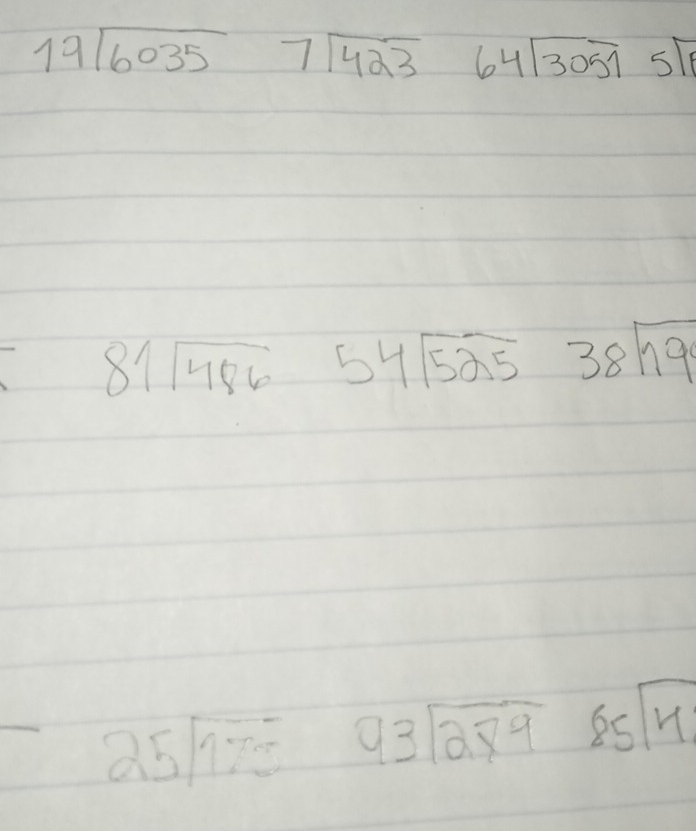 19√6035 7√423 64√3051 5√
81√486 54√525 38√19
25√175 93√279 85√4